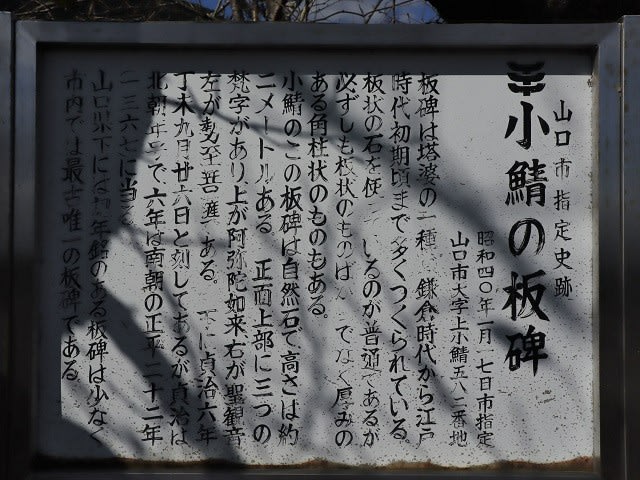 山口市指定史跡
小鯖の板碑
昭和四〇年一月一七日市指定
山口市大字上小鯖五八二番地
板碑は塔婆の一種 鎌倉時代から江戸
時代初期頃まで多くつくられている。
板状の石を使 しるのが普通であるが
必ずしも板状のものば でなく厚みの
ある角柱状のものもある。
小鯖のこの板碑は自然石で高さは約
二メートルある 正面上部に三つの
梵字があり上が阿弥陀如来右が聖観音
左が勢至菩薩 ある。 に貞治六年
丁未九月廿六日と刻してあるが貞治は
北朝年号で六年は南朝の正平二十二年
一三六七に当
山口県下には 年銘のある板碑は少なく
市内では最古唯一の板碑である